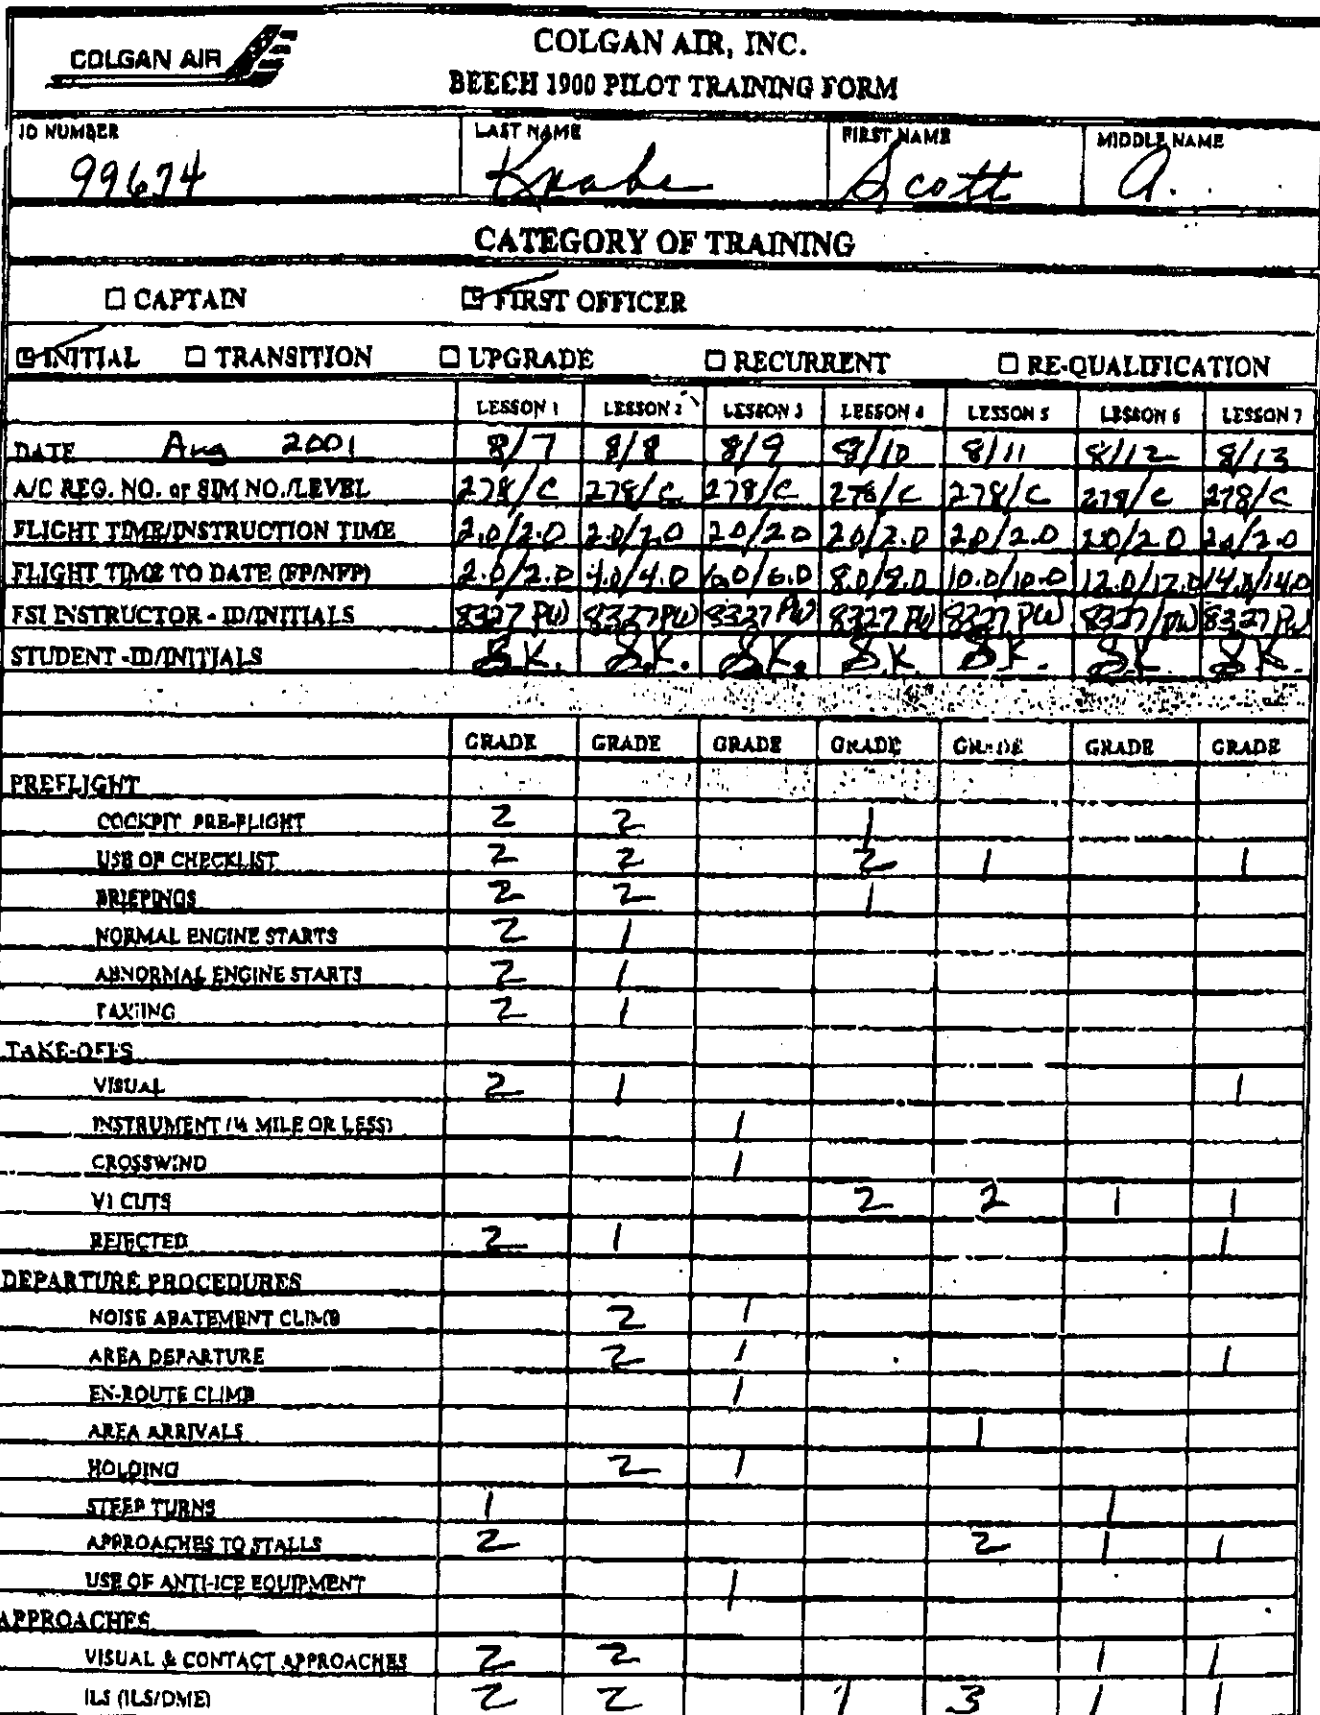 COLGAN AIR
COLGAN AIR, INC.
BEECH 1900 PILOT TRAINING FORM
ID NUMBER LAST NAME FIRST NAME MIDDLE NAME
99674 Knabe Scott A.
CATEGORY OF TRAINING
CAPTAIN FIRST OFFICER
INITIAL TRANSITION UPGRADE RECURRENT RE-QUALIFICATION
LESSON 1 LESSON 2 LESSON 3 LESSON 4 LESSON 5 LESSON 6 LESSON 7
DATE Aug 2001 8/7 8/8 8/9 8/10 8/11 8/12 8/13
A/C REG. NO. or SIM NO./LEVEL 278/C 278/C 278/C 278/C 278/C 278/C 278/C
FLIGHT TIME/INSTRUCTION TIME 2.0/2.0 2.0/2.0 2.0/2.0 2.0/2.0 2.0/2.0 2.0/2.0 2.0/2.0
FLIGHT TIME TO DATE (FP/NFP) 2.0/2.0 4.0/4.0 6.0/6.0 8.0/8.0 10.0/10.0 12.0/12.0 14.0/14.0
FSI INSTRUCTOR - ID/INITIALS 8327 PW 8327 PW 8327 PW 8327 PW 8327 PW 8327/PW 8327 PW
STUDENT -ID/INITIALS S.K. S.K. S.K. S.K. S.K. S.K. S.K.
GRADE GRADE GRADE GRADE GRADE GRADE GRADE
PREFLIGHT
COCKPIT PRE-FLIGHT 2 2 1
USE OF CHECKLIST 2 2 2 1 1
BRIEFINGS 2 2 1
NORMAL ENGINE STARTS 2 1
ABNORMAL ENGINE STARTS 2 1
TAXIING 2 1
TAKE-OFFS
VISUAL 2 1 1
INSTRUMENT (¼ MILE OR LESS) 1
CROSSWIND 1
V1 CUTS 2 2 1 1
REJECTED 2 1 1
DEPARTURE PROCEDURES
NOISE ABATEMENT CLIMB 2 1
AREA DEPARTURE 2 1 1
EN-ROUTE CLIMB 1
AREA ARRIVALS 1
HOLDING 2 1
STEEP TURNS 1 1
APPROACHES TO STALLS 2 2 1 1
USE OF ANTI-ICE EQUIPMENT 1
APPROACHES
VISUAL & CONTACT APPROACHES 2 2 1 1
ILS (ILS/DME) 2 2 1 3 1 1